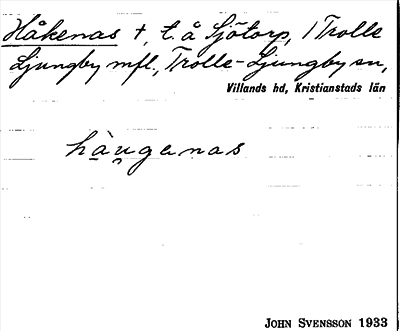 Håkenas †, t. å Sjötorp, 1 Trolle
Ljungby mfl., Trolle-Ljungby sn,
Villands hd, Kristianstads län
hạu̯genas
JOHN SVENSSON 1933